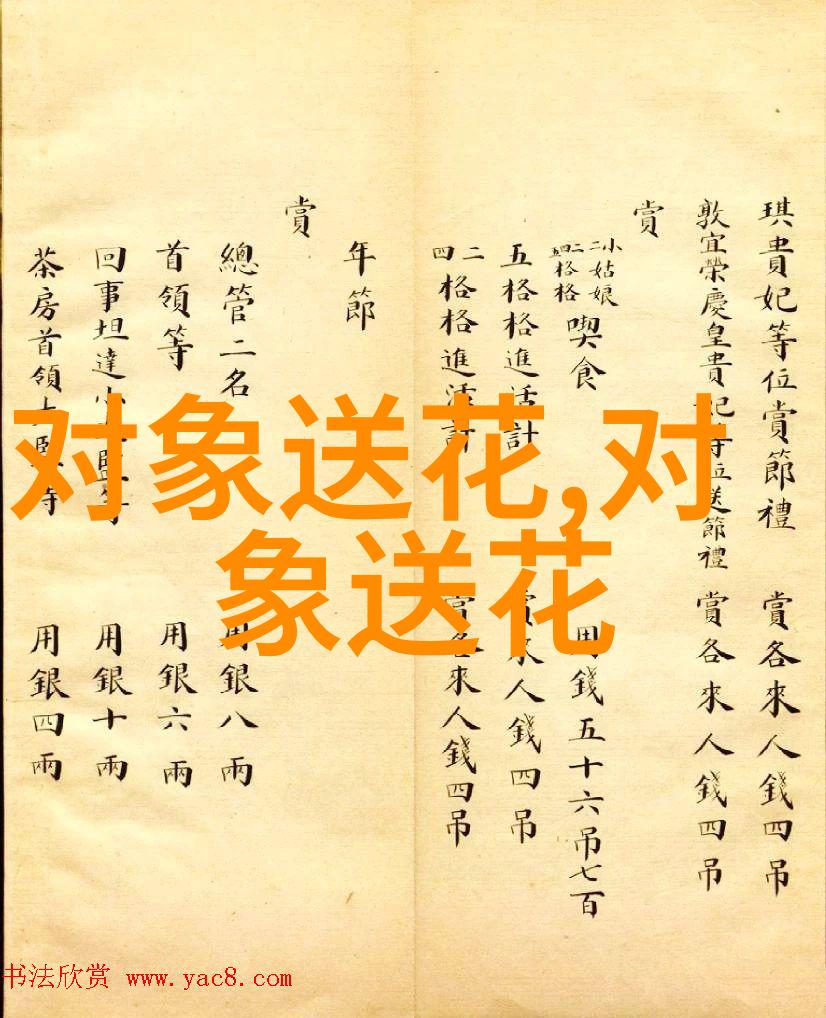 琪貴妃等位賞節禮 賞各來人錢四吊
敦宜榮慶皇貴妃等位送節禮 賞各來人錢四吊
賞
小姑娘
二二格格
四五格格
喫食 用錢五十六吊七百
五格格進活計 賞來人錢四吊
二四格格進活計 賞各來人錢四吊
年節
賞
總管二名 用銀八兩
首領等 用銀六兩
回事坦達小太監等 用銀十兩
茶房首領太監等 用銀四兩
对象送花,对
象送花
书法欣赏 www.yac8.com